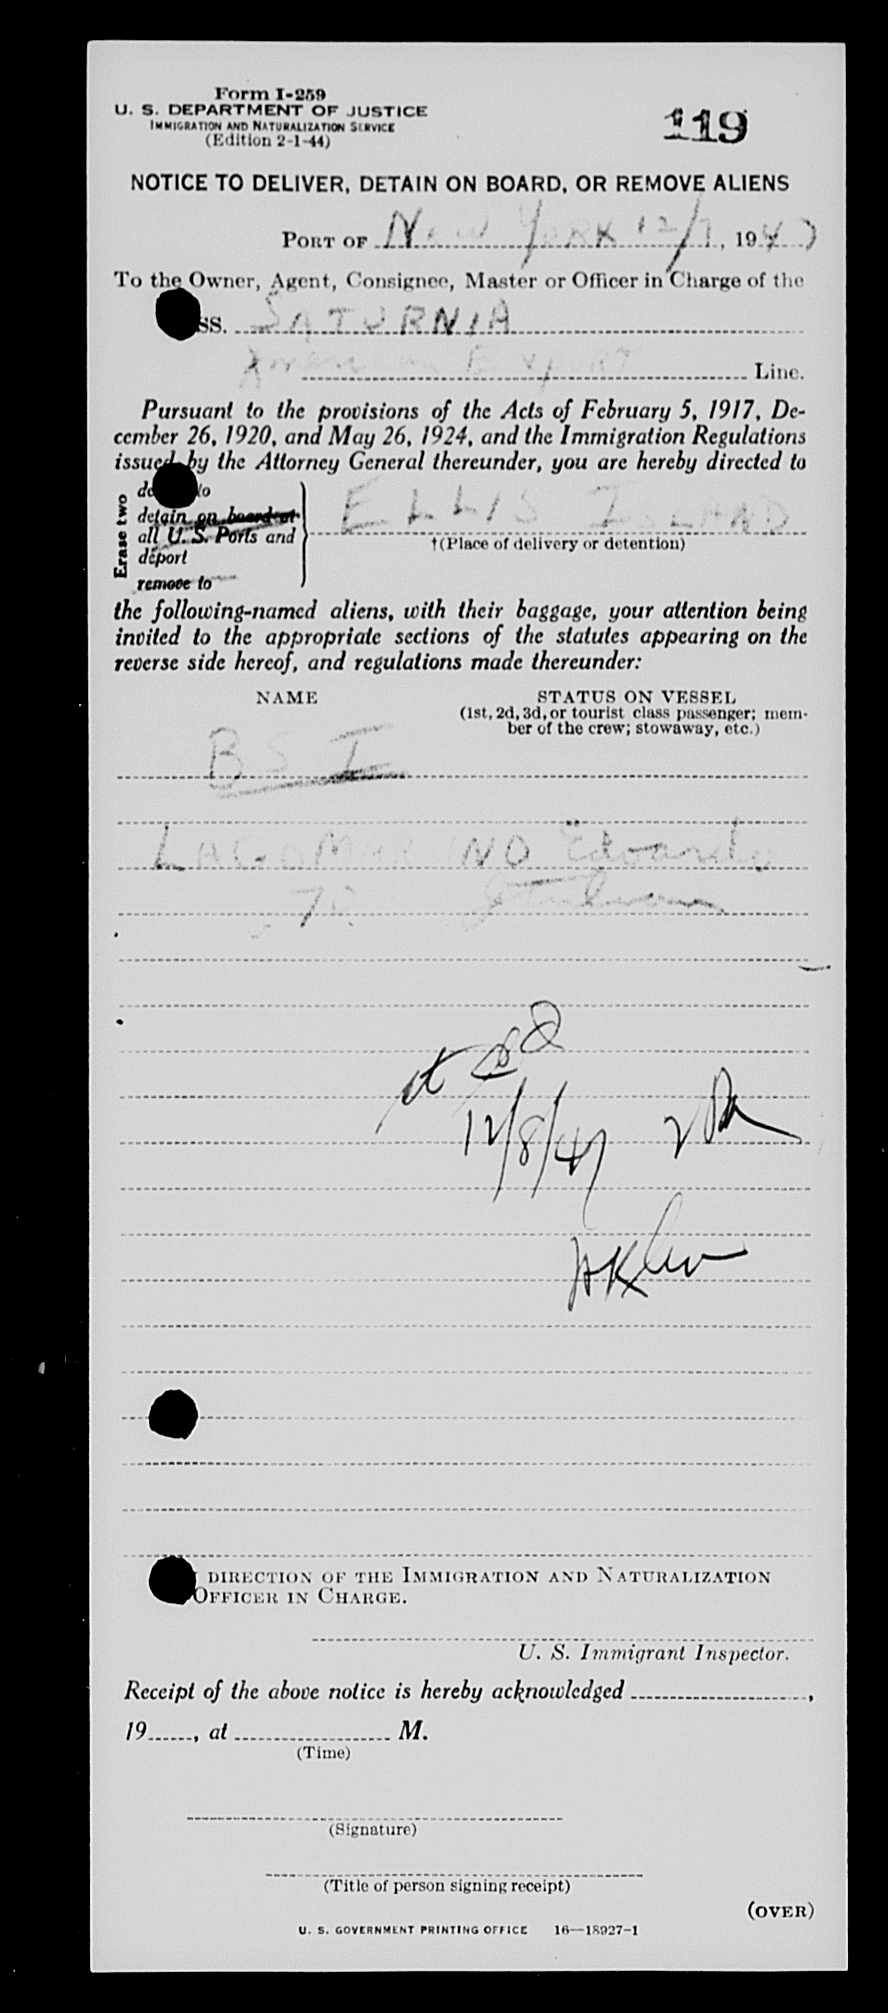 Form I-259
U. S. DEPARTMENT OF JUSTICE
IMMIGRATION AND NATURALIZATION SERVICE
(Edition 2-1-44)
119
NOTICE TO DELIVER, DETAIN ON BOARD, OR REMOVE ALIENS
PORT OF New York 12/7, 1947
To the Owner, Agent, Consignee, Master or Officer in Charge of the
SS. SATURNIA
American Export Line.
Pursuant to the provisions of the Acts of February 5, 1917, De-
cember 26, 1920, and May 26, 1924, and the Immigration Regulations
issued by the Attorney General thereunder, you are hereby directed to
Erase two
to
detain on board at
all U. S. Ports and
deport
remove to
ELLIS ISLAND
†(Place of delivery or detention)
the following-named aliens, with their baggage, your attention being
invited to the appropriate sections of the statutes appearing on the
reverse side hereof, and regulations made thereunder:
NAME
STATUS ON VESSEL
(1st, 2d, 3d, or tourist class passenger; mem-
ber of the crew; stowaway, etc.)
BSI
LAGOMARSINO Edoardo
70 Italian
12/8/47
DIRECTION OF THE IMMIGRATION AND NATURALIZATION
OFFICER IN CHARGE.
U. S. Immigrant Inspector.
Receipt of the above notice is hereby acknowledged
19 , at M.
(Time)
(Signature)
(Title of person signing receipt)
(OVER)
U. S. GOVERNMENT PRINTING OFFICE 16—18927-1